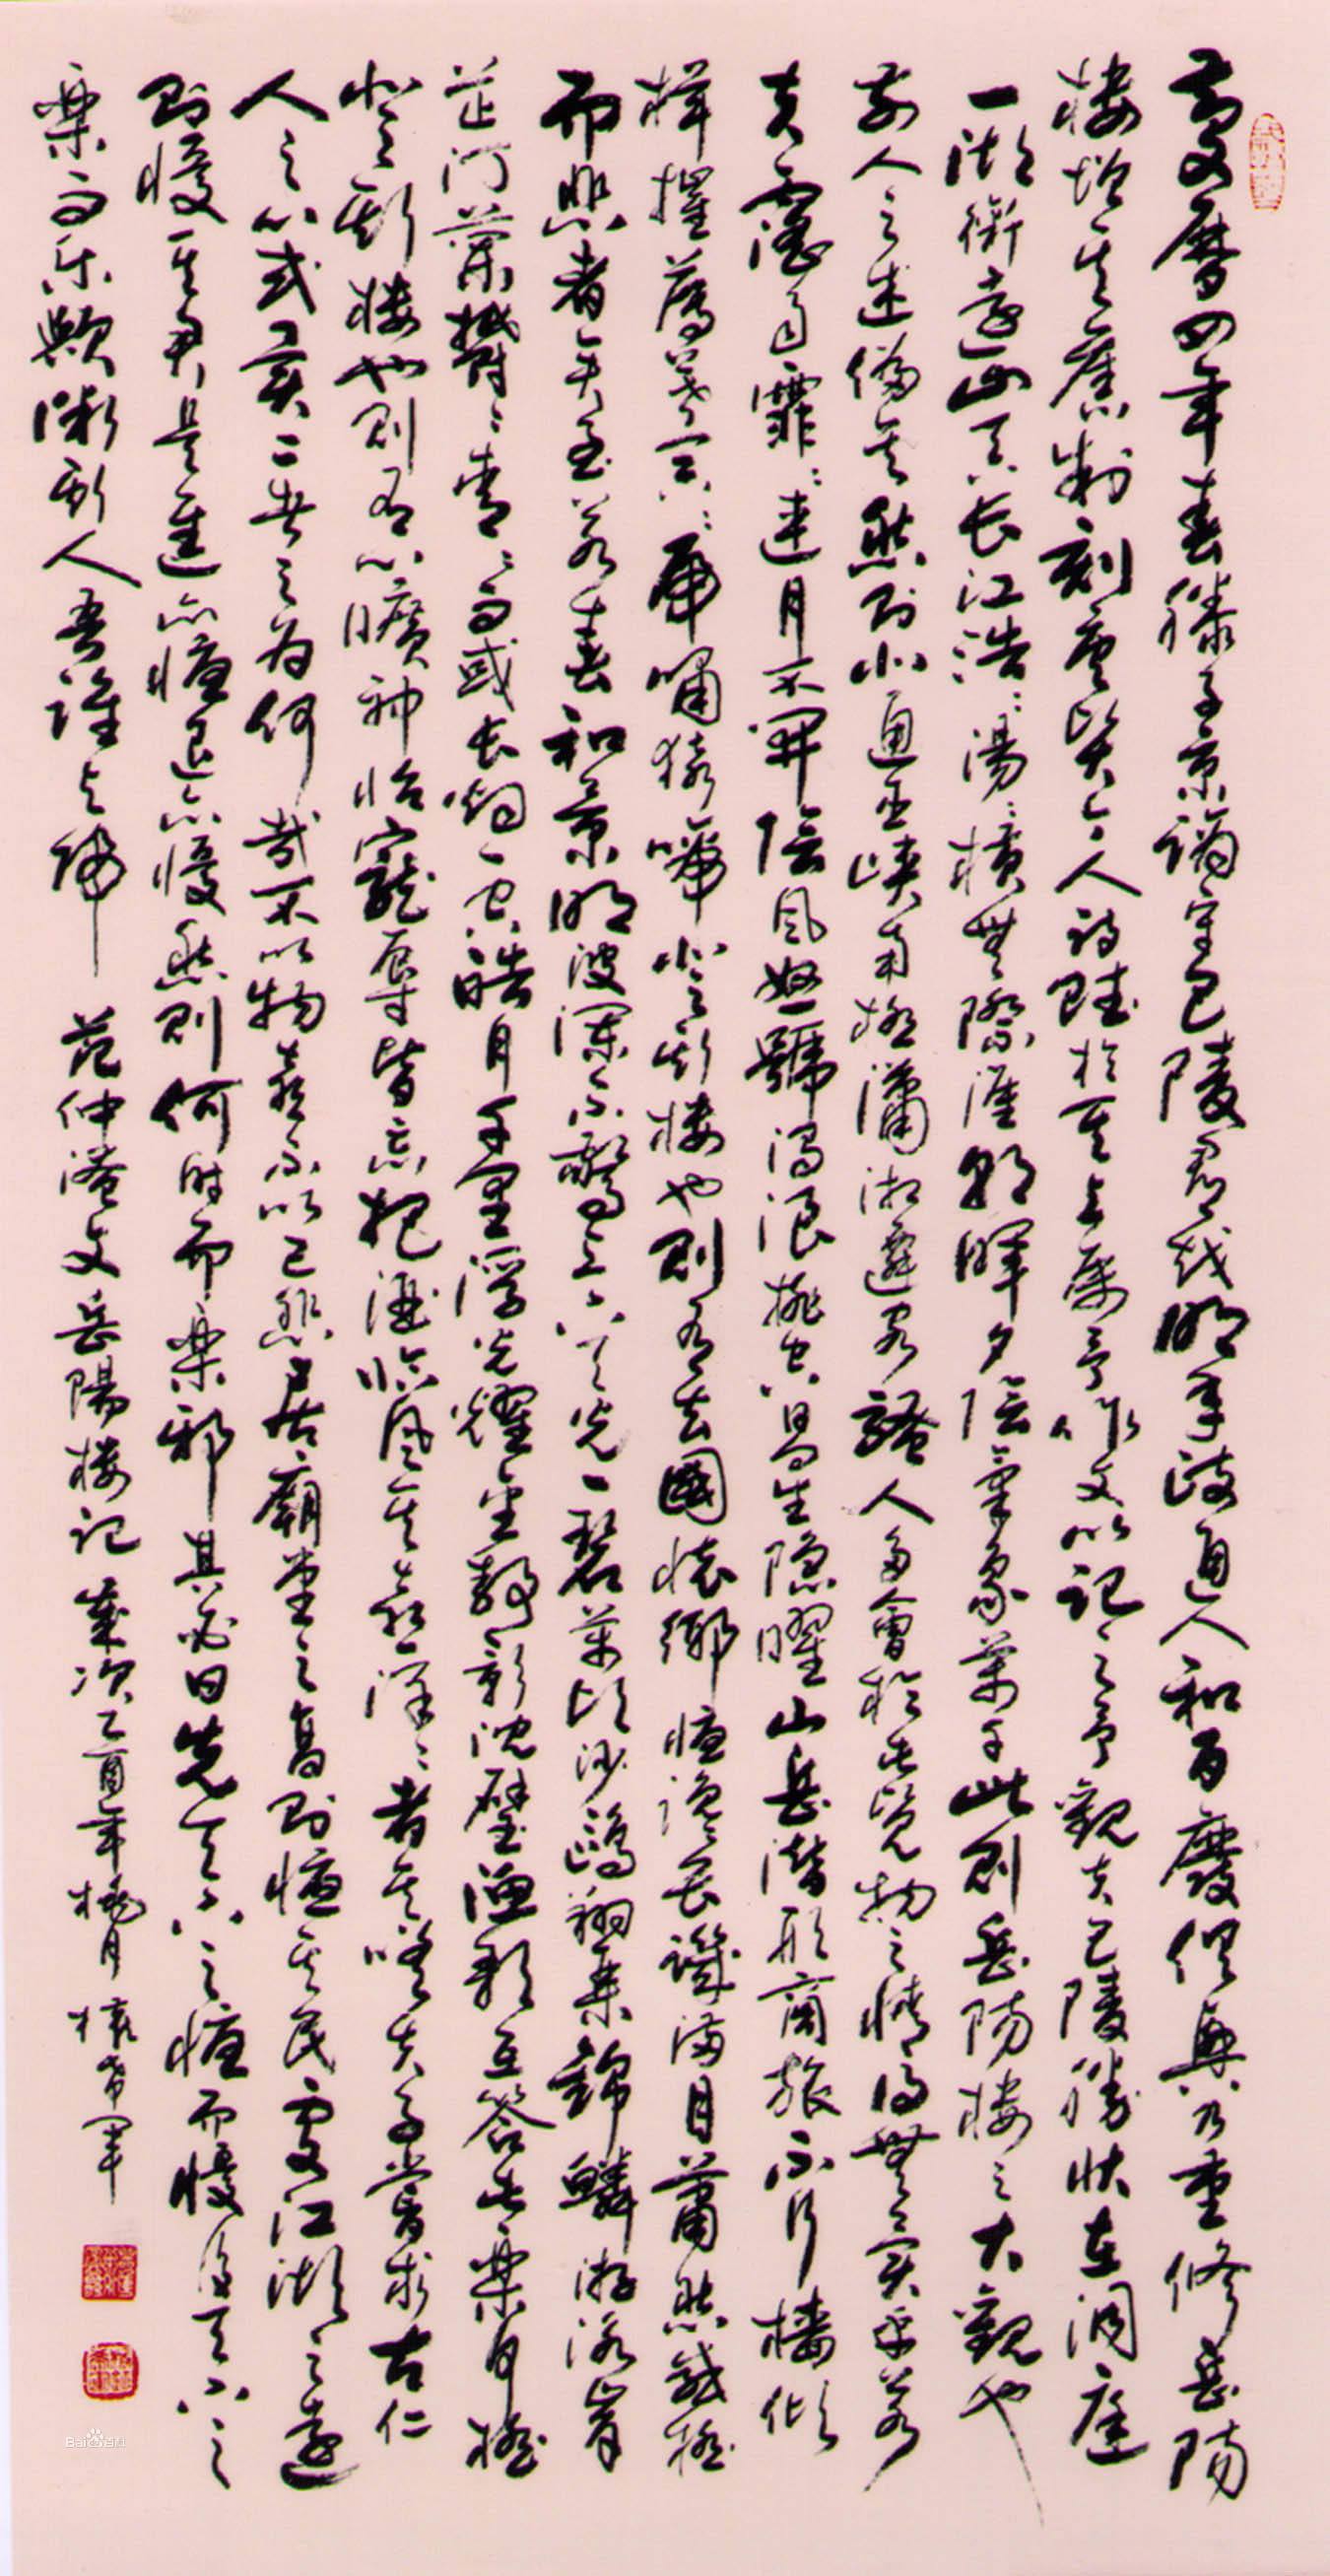 慶曆四年春滕子京謫守巴陵郡越明年政通人和百廢俱興乃重修岳陽
樓增其舊制刻唐賢今人詩賦於其上屬予作文以記之予觀夫巴陵勝狀在洞庭
一湖銜遠山吞长江浩浩湯湯橫無際涯朝暉夕陰氣象萬千此則岳陽樓之大觀也
前人之述備矣然則北通巫峽南極瀟湘遷客騷人多會於此覽物之情得無異乎若
夫霪雨霏霏連月不開陰風怒號濁浪排空日星隱曜山岳潛形商旅不行檣傾
楫摧薄暮冥冥虎嘯猿啼登斯樓也則有去國懷鄉憂讒畏譏滿目蕭然感極
而悲者矣至若春和景明波瀾不驚上下天光一碧萬頃沙鷗翔集錦鱗游泳岸
芷汀蘭鬱鬱青青而或長烟一空皓月千里浮光耀金靜影沈璧漁歌互答此樂何極
登斯樓也則有心曠神怡寵辱皆忘把酒臨風其喜洋洋者矣嗟夫予嘗求古仁
人之心或異二者之為何哉不以物喜不以己悲居廟堂之高則憂其民處江湖之遠
則憂其君是進亦憂退亦憂然則何時而樂邪其必曰先天下之憂而憂後天下之
樂而乐歟微斯人吾誰与歸 范仲淹文岳陽樓記 歲次乙酉年桃月
Baidu百科